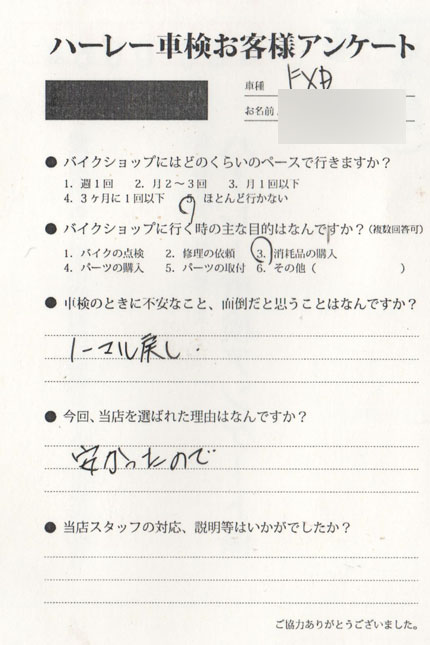 ハーレー車検お客様アンケート
車種 FXD
お名前
● バイクショップにはどのくらいのペースで行きますか？
1. 週1回 2. 月2～3回 3. 月1回以下
4. 3ヶ月に1回以下 5. ほとんど行かない
● バイクショップに行く時の主な目的はなんですか？(複数回答可)
1. バイクの点検 2. 修理の依頼 3. 消耗品の購入
4. パーツの購入 5. パーツの取付 6. その他 ( )
● 車検のときに不安なこと、面倒だと思うことはなんですか？
ノーマル戻し.
● 今回、当店を選ばれた理由はなんですか？
安かったので
● 当店スタッフの対応、説明等はいかがでしたか？
ご協力ありがとうございました。